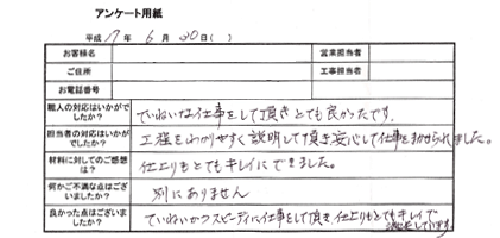 アンケート用紙
平成 17 年 6 月 20 日( )
お客様名 営業担当者
ご住所 工事担当者
お電話番号
職人の対応はいかがでしたか? ていねいな仕事をして頂きとても良かったです。
担当者の対応はいかがでしたか? 工程をわかりやすく説明して頂き安心して仕事をまかせられました。
材料に対してのご感想は? 仕上りもとてもキレイにできました。
何かご不満な点はございましたか? 別にありません
良かった点はございましたか? ていねいかつスピーディに仕事をして頂き、仕上りもとてもキレイで
満足しています。